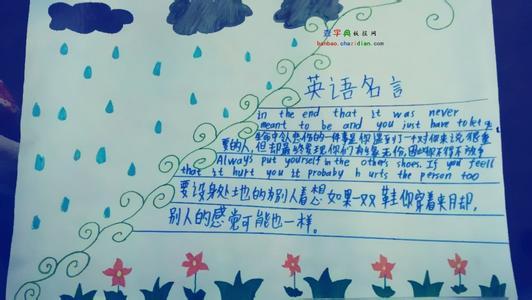 查字典板报网
banbao.chazidian.com
英语名言
in the end that it was never
meant to be and you just have to let
生命中令悲伤的一件事是你遇到了一个对你来说很重
要的人,但却最终发现你们有缘无份,因此你不得不放手
Always put yourself in the other's shoes. If you feell
that it hurt you it probaby hurts the person too
要设身处地的为别人着想.如果一双鞋你穿着夹脚,
别人的感觉可能也一样。